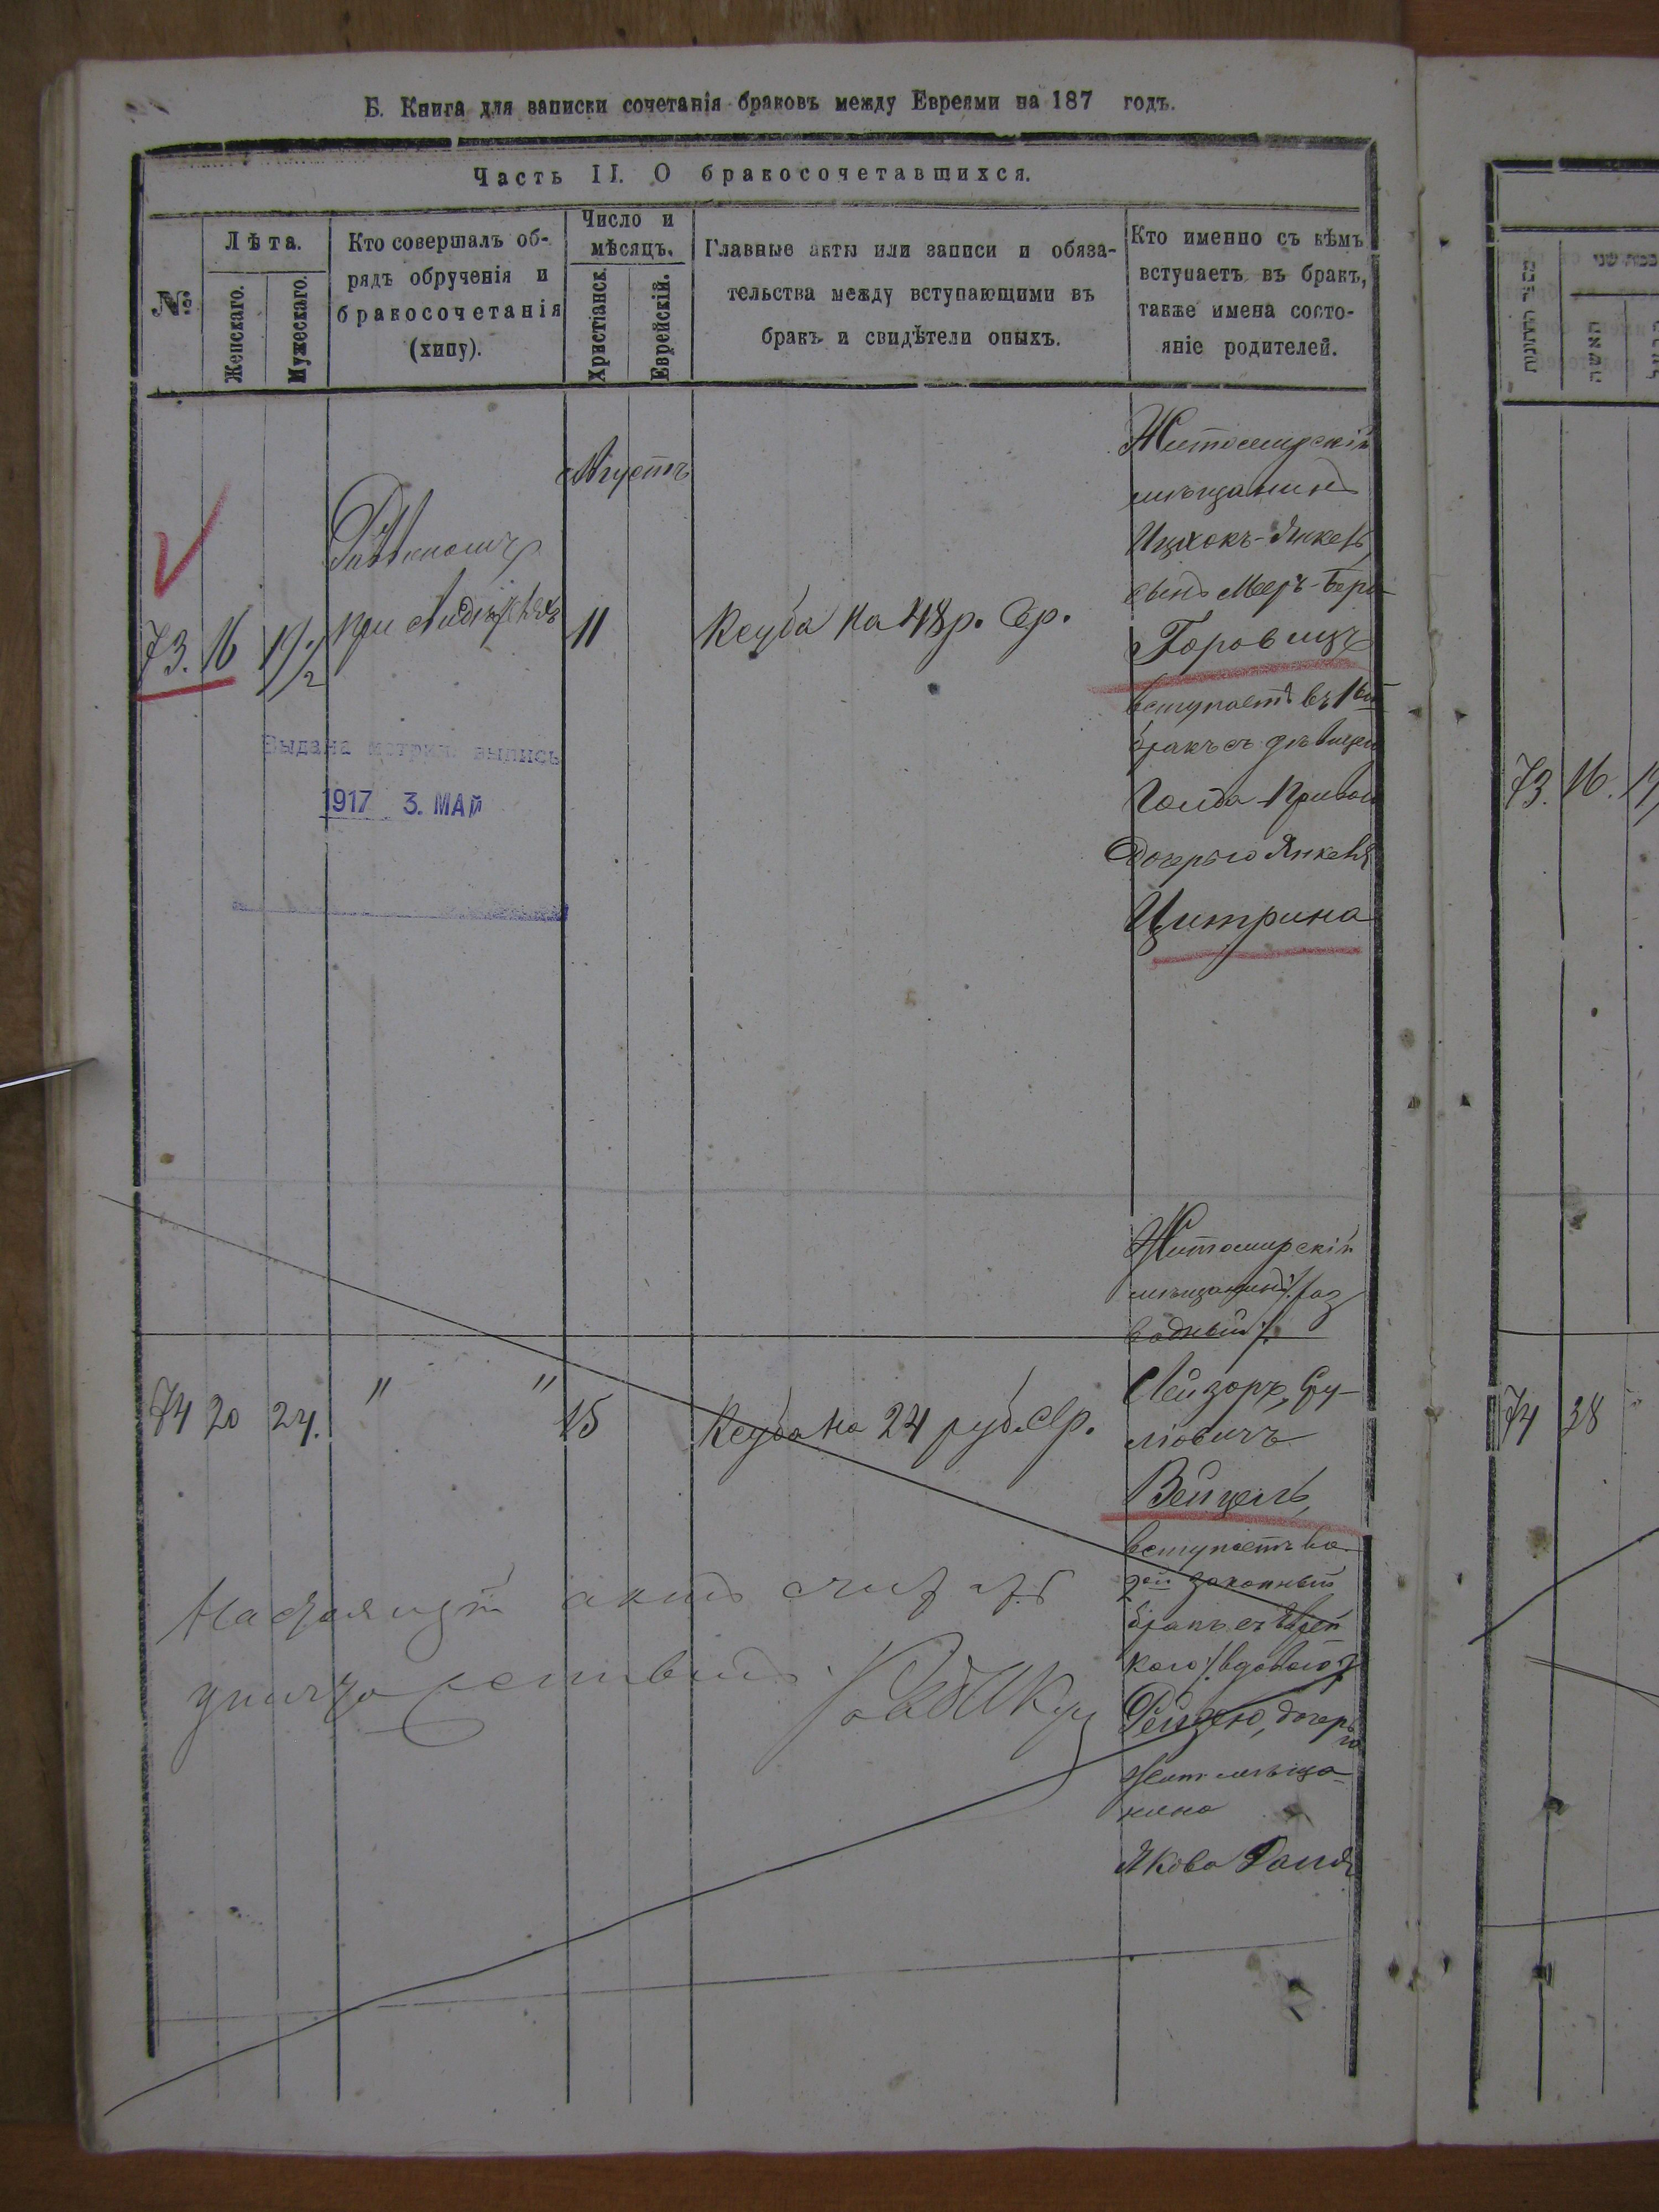 Б. Книга для записки сочетанія браковъ между Евреями на 187 годъ.
Часть II. О бракосочетавшихся.
№
Лѣта.
Женскаго.
Мужескаго.
Кто совершалъ об-
рядъ обрученія и
бракосочетанія
(хипу).
Число и
мѣсяцъ.
Христіанск.
Еврейскій.
Главные акты или записи и обяза-
тельства между вступающими въ
бракъ и свидѣтели оныхъ.
Кто именно съ кѣмъ
вступаетъ въ бракъ,
также имена состо-
яніе родителей.
73.
16
19 1/2
при
Августъ
11
Ксуба на 48 р. Сер.
Житомирскій
мѣщанинъ
Ицхокъ-Янкель
сынъ Меер-Бера
Горовицъ
вступаетъ въ 1ый
бракъ съ дѣвицею
Голда
Дочерью Янкеля
Цитрина
Выдана метрич. выпись
1917 3. МАЙ
74
20
24.
" "
15
Ксуба на 24 руб. Сер.
Житомирскій
мѣщанинъ /:раз
водный:/
Лейзоръ Сру-
ліовичъ
Вейцель,
вступаетъ во
2ой законный
бракъ съ
вдовою
Рейзею, дочерью
Жит мѣща-
нина
Якова
Настоящій актъ счит
уничтоженнымъ
73. 16.
74 38